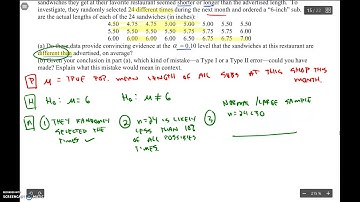 sandwiches they get at their favorite restaurant seemed shorter or longer than the advertised length. To
investigate, they randomly selected 24 different times during the next month and ordered a "6-inch" sub.
are the actual lengths of each of the 24 sandwiches (in inches):
4.50 4.75 4.75 5.00 5.00 5.00 5.50 5.50
6.00 6.00
(a) Do these data provide convincing evidence at the α = 0.10 level that the sandwiches at this restaurant are
different than advertised, on average?
(b) Given your conclusion in part (a), which kind of mistake—a Type I or a Type II error—could you have
made? Explain what this mistake would mean in context.
15 / 22
P μ = TRUE POP. MEAN LENGTH OF ALL SUBS AT THIS SHOP THIS
MONTH.
H H₀: μ = 6 Hₐ: μ ≠ 6
A ① THEY RANDOMLY
SELECTED THE
TIMES ✓
② n=24 IS LIKELY
LESS THAN 10%
OF ALL POSSIBLE
TIMES.
③ NORMAL/LARGE SAMPLE
n=24<30